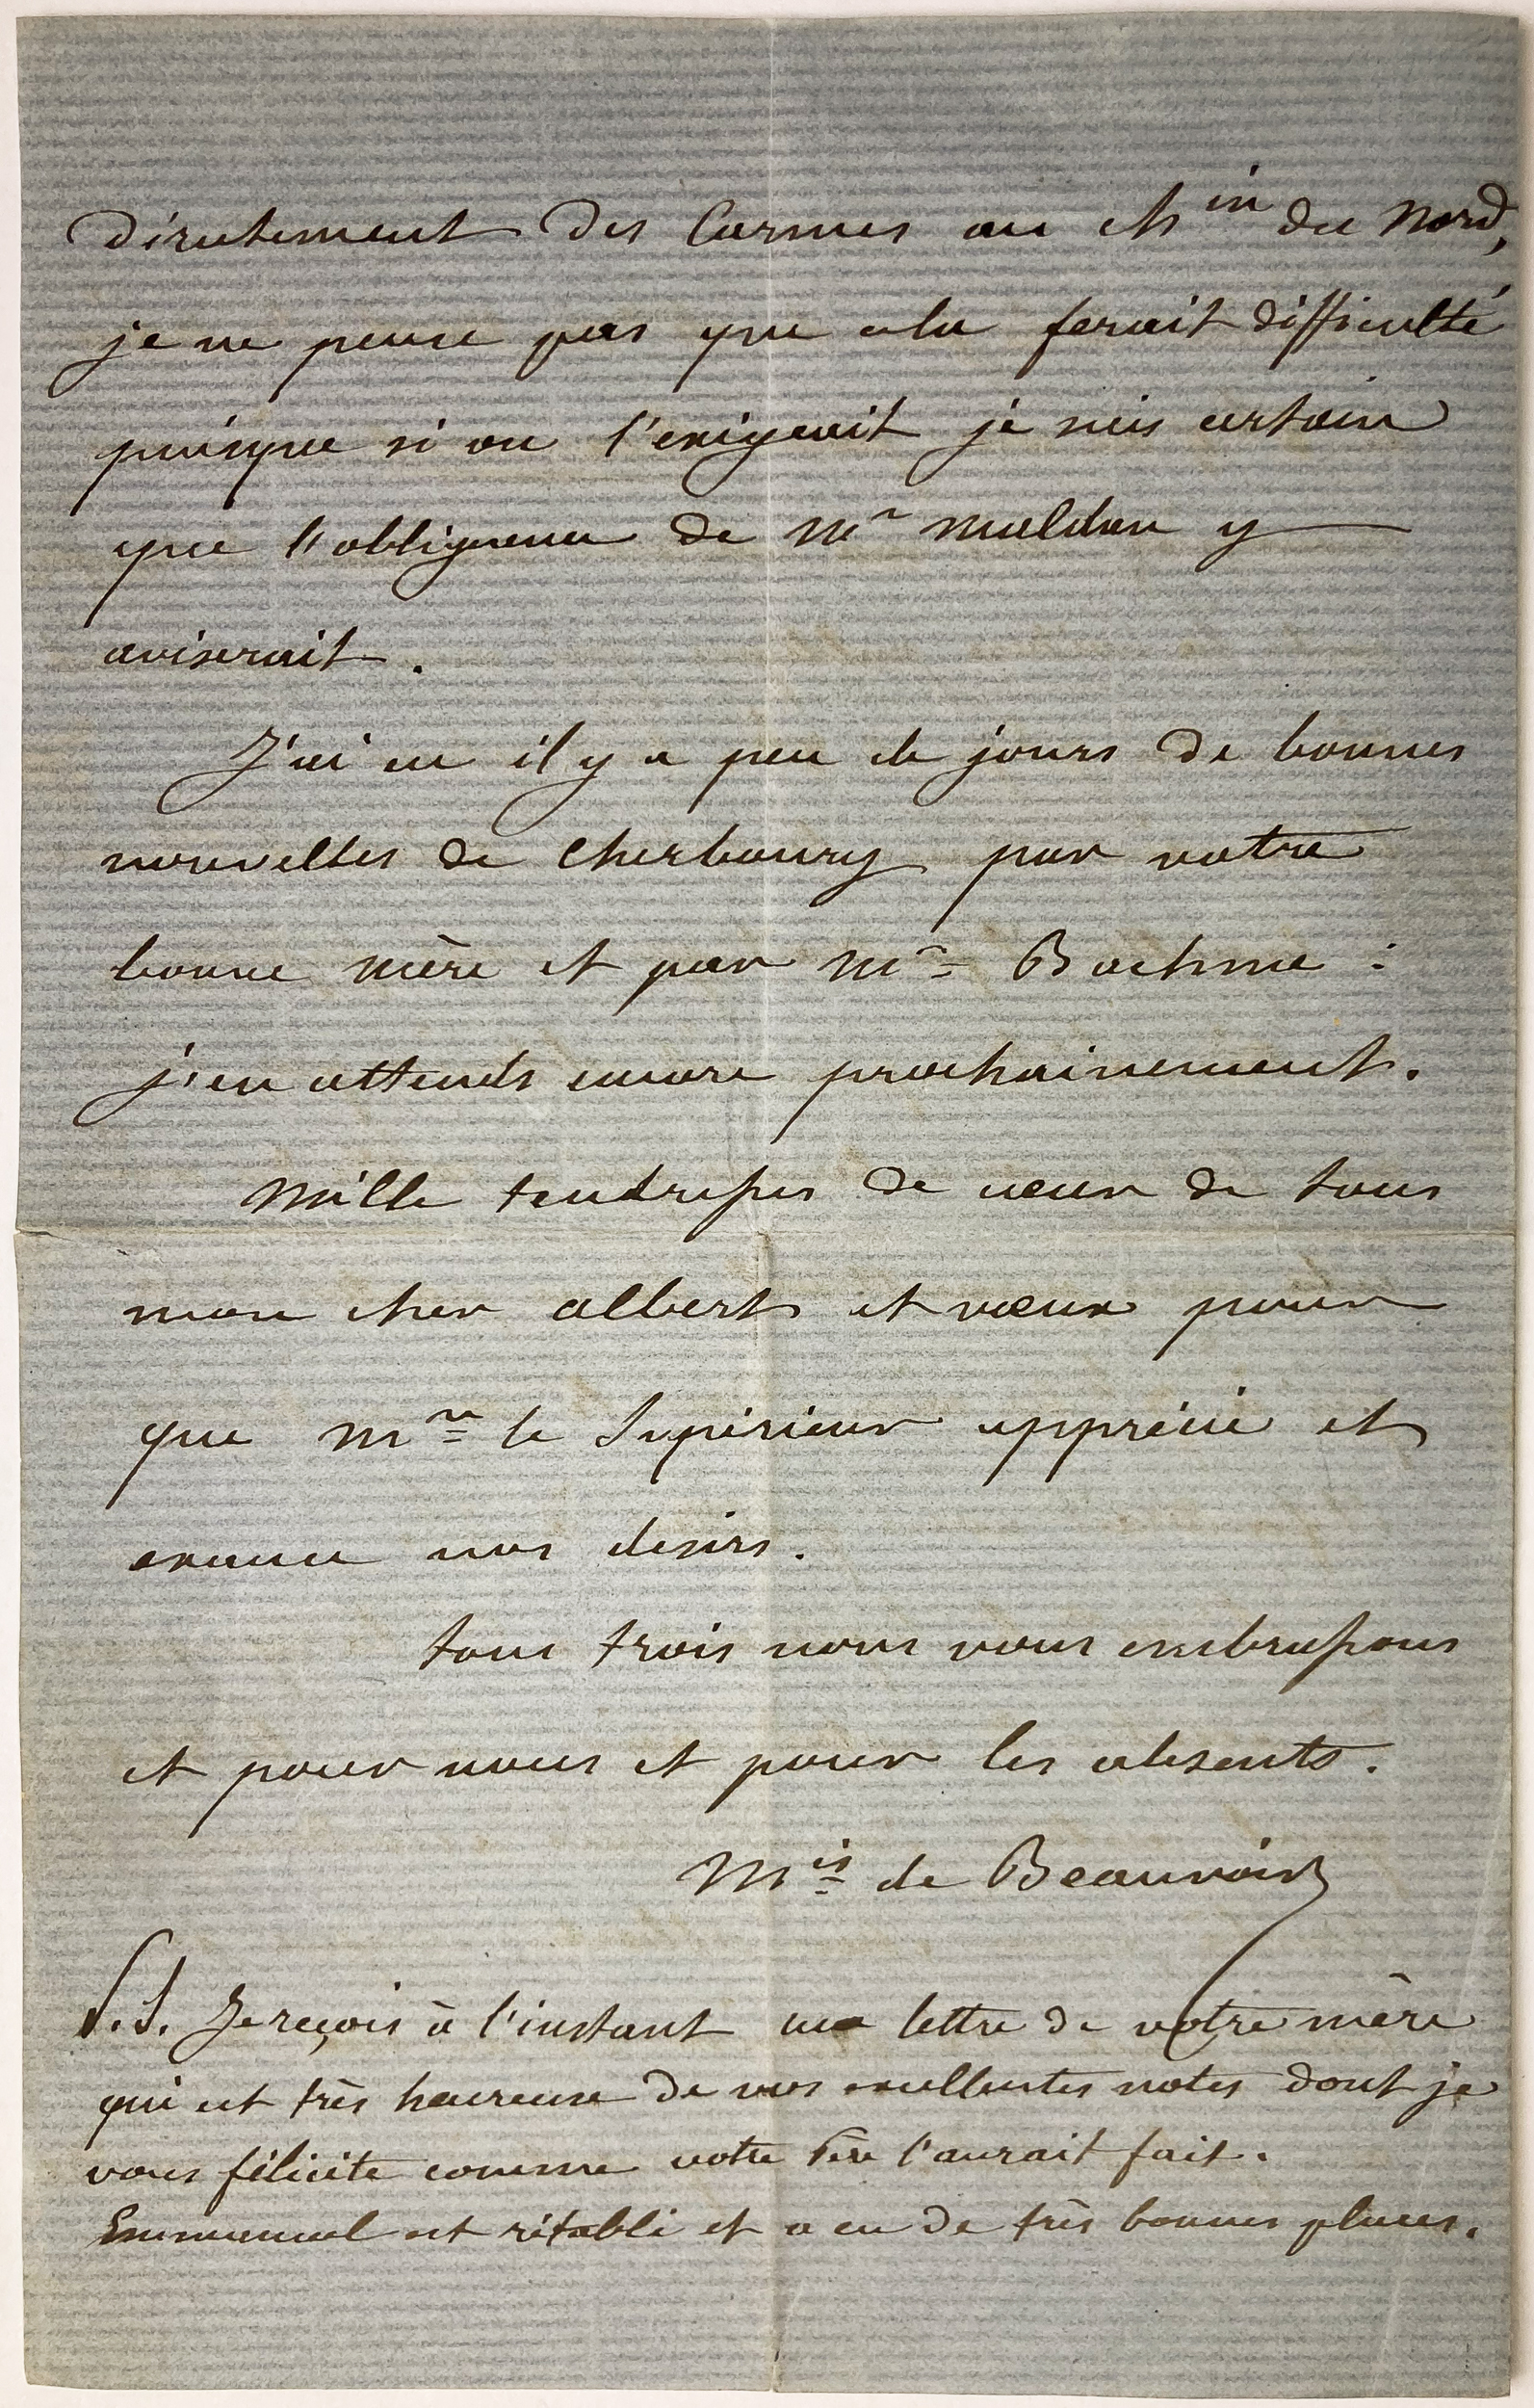 directement des Carmes au ch^in du Nord,
je ne pense pas que cela ferait difficulté
puisque si on l'exigeait je suis certain
que l'obligeance de M^r Muldon y
aviserait.
J'ai eu il y a peu de jours de bonnes
nouvelles de Cherbourg par votre
bonne mère et par M^r Boehme :
j'en attends encore prochainement.
Mille tendresses de cœur de tous
mon cher albert et vœux pour
que M^r le Supérieur apprécie et
exauce nos desirs.
tous trois nous vous embrassons
et pour nous et pour les absents.
M^is de Beauvoir
P.S. Je reçois à l'instant une lettre de votre mère
qui est très heureuse de vos excellentes notes dont je
vous félicite comme votre Père l'aurait fait.
Emmanuel est rétabli et a eu de très bonnes places.